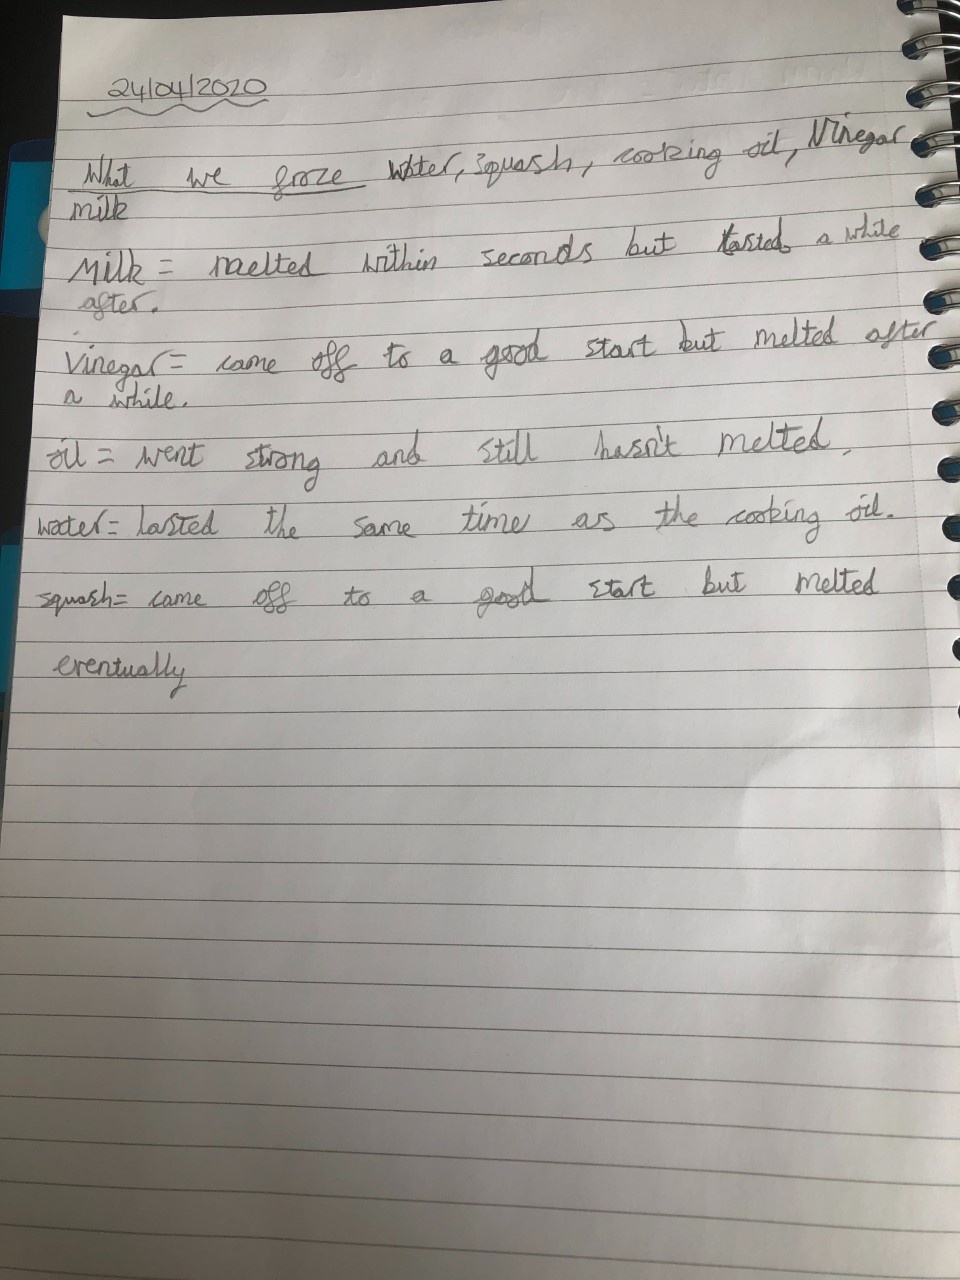 24/04/2020
What we froze Water, Squash, cooking oil, Vinegar
milk
Milk = melted within seconds but lasted a while
after.
Vinegar = came off to a good start but melted after
a while.
oil = went strong and still hasn't melted.
water = lasted the same time as the cooking oil.
squash = came off to a good start but melted
eventually